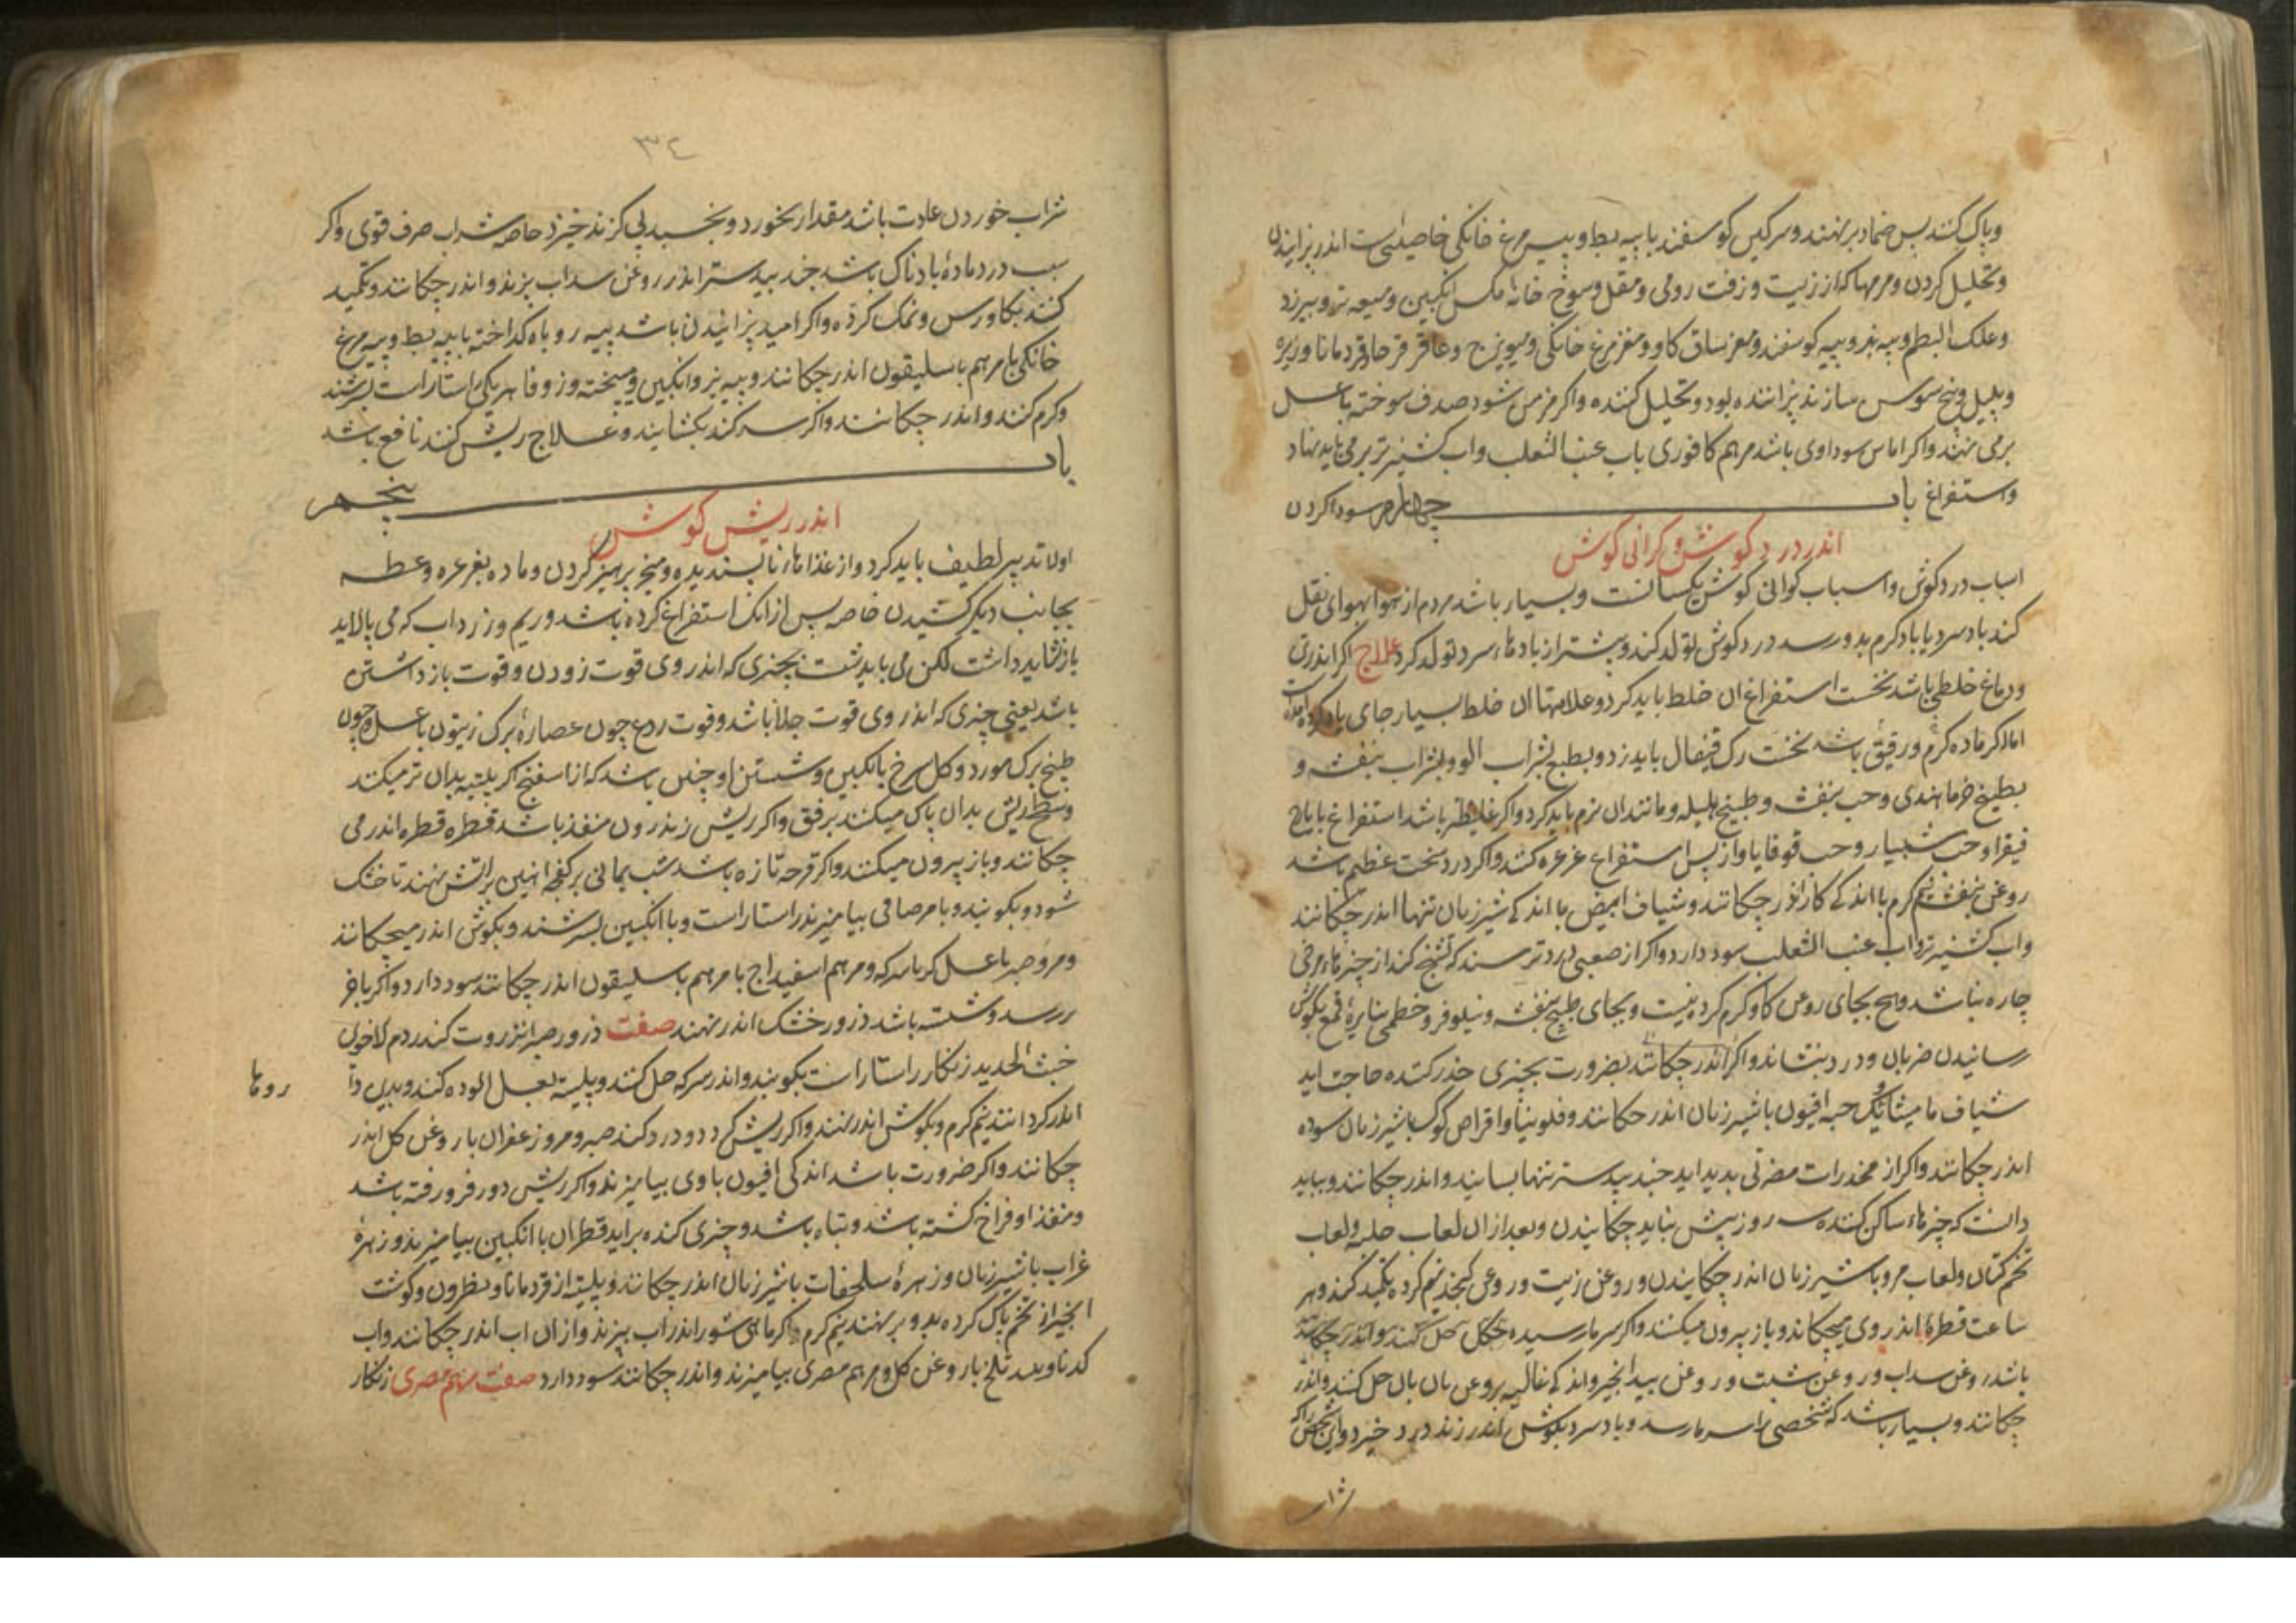 وپاک کنند پس ضماد برنهند وسرکین کوسفند با پیه بط و پیه مرغ خانکی خاصیتی ست اندر پزانیدن
وتحلیل کردن ومرهمها که از زیت و زفت رومی ومقل ووسخ خانه مکس انکبین ومیعه تر وبیرزد
وعلک البطم وپیه بز وپیه کوسفند ومغز ساق کاو ومغز مرغ خانکی ومیویزج وعاقرقرحا وقردمانا وزیره
وپلپل وبیخ سوس سازند پزاننده بود وتحلیل کننده واکر مزمن شود صدف سوخته باعسل
برمی نهند واکر اماس سوداوی باشد مرهم کافوری باب عنب الثعلب واب کشنیز تر برمی باید نهاد
واستفراغ سودا کردن باب چهارم
اندر درد کوش وکرانی کوش
اسباب درد کوش واسباب کرانی کوش یکسانست وبسیار باشد مردم از هوا بهوای نقل
کند باد سرد یا باد کرم بدو رسد درد کوش تولد کند وبیشتر از بادهاء سرد تولد کرد علاج اکر اندر تن
ودماغ خلطی باشد نخست استفراغ ان خلط باید کرد وعلامتها ان خلط بسیار جای یاد کرده
اما اکر ماده کرم ورقیق باشد نخست رک قیفال باید زد وبطبع بشراب الو وبشراب بنفشه و
بطبیخ خرما هندی وحب بنفشه وطبیخ هلیله ومانند ان نرم باید کرد واکر غلیظ باشد استفراغ بایارج
فیقرا وحب شبیار وحب قوقایا واز پس استفراغ غرغره کنند واکر درد سخت عظیم باشد
روغن بنفشه نیم کرم با اندکی کافور اندر چکانند وشیاف ابیض با اندکی شیر زنان تنها اندر چکانند
واب کشنیز تر واب عنب الثعلب سود دارد واکر از صعبی درد ترسند که تشنج کند از چیزهاء مرخی
چاره نباشد وهیچ بجای روغن کاو کرم کرده نیست وبجای طبیخ بنفشه ونیلوفر وخطمی بنایزهٔ قمع بکوش
رسانیدن ضربان ودرد بنشاند واکر اندر چکانند بضرورت بچیزی خدر کننده حاجت اید
شیاف مامیثا یک حبه افیون باشیر زنان اندر چکانند وفلونیا واقراص کوکب باشیر زنان سوده
اندر چکانند واکر از مخدرات مضرتی بدید اید جند بیدستر تنها بسایند واندر چکانند وبباید
دانست که چیزهاء ساکن کننده سه روز بیش نباید چکانیدن وبعد از ان لعاب حلبه ولعاب
تخم کتان ولعاب مرو باشیر زنان اندر چکانیدن وروغن زیت وروغن کنجد نیم کرده تکمید کنند وهر
ساعت قطرهٔ اندر روی میچکاند وباز بیرون میکنند واکر سرما رسیده
باشد روغن سداب وروغن شبت وروغن بیدانجیر واندکی غالیه بروغن بان حل کنند واندر
چکانند وبسیار باشد که شخصی را سرما رسد وباد سرد بکوش اندر زند درد خیزد واین شخص را که
شراب
٣٤
شراب خوردن عادت باشد مقدار بخورد وبخسبد بی کزند خیزد خاصه شراب صرف قوی واکر
سبب درد مادهٔ بادناک باشد جند بیدستر اندر روغن سداب بزند واندر چکانند وتکمید
کنند بکاورس ونمک کرده واکر امید پزانیدن باشد پیه روباه کداخته با پیه بط وپیه مرغ
خانکی با مرهم باسلیقون اندر چکانند وپیه بز وانکبین ومیبخته وزوفا هر یکی راستاراست بسرشند
وکرم کنند واندر چکانند واکر سر کند بکشایند وعلاج ریش کنند نافع باشد
باب پنجم
اندر ریش کوش
اول تدبیر لطیف باید کرد واز غذاهاء ناپسندیده ومبخر پرهیز کردن وماده بغرغره وعطسه
بجانب دیکر کشیدن خاصه پس از انک استفراغ کرده باشد وریم وزرداب که می بالاید
باز نشاید داشت لکن می باید شست بچیزی که اندر وی قوت زدودن وقوت باز داشتن
باشد یعنی چیزی که اندر وی قوت جلا باشد وقوت ردع چون عصارهٔ برک زیتون باعسل وچون
طبیخ برک مورد وکل سرخ با انکبین وشستن او چنان باشد که از اسفنج اکر پلیته بدان تر میکنند
وسطح ریش بدان پاک میکنند برفق واکر ریش زاندرون منفذ باشد قطره قطره اندر می
چکانند وباز بیرون میکنند واکر قرحه تازه باشد شب یمانی بر کفچه اهنین بر اتش نهند تا خشک
شود وبکوبند وبا مر صافی بیامیزند راستاراست وبا انکبین بسرشند وبکوش اندر میچکانند
ومر وصبر باعسل کرباسرکه ومرهم اسفیداج با مرهم باسلیقون اندر چکانند سود دارد واکر باخر
رسد وشسته باشد ذرور خشک اندر نهند صفت ذرور صبر انزروت کندر دم الاخوین
خبث الحدید زنکار راستاراست بکوبند واندر سرکه حل کنند وپلیته بعسل الوده کنند وبدین دارو
روها
اندر کردانند نیم کرم وبکوش اندر نهند واکر ریش کردد ودرد کند صبر ومر وزعفران با روغن کل اندر
چکانند واکر ضرورت باشد اندکی افیون باوی بیامیزند واکر ریش دور فرو رفته باشد
ومنفذ او فراخ کشته باشد وتباه باشد وچیزی کنده براید قطران با انکبین بیامیزند وزهرهٔ
غراب باشیر زنان وزهرهٔ سلحفات باشیر زنان اندر چکانند وپلیته از قردمانا ونطرون وکوشت
انجیر از تخم پاک کرده بدو برنهند نیم کرم واکر ماهی شور اندر اب بپزند واز ان اب اندر چکانند واب
کدنا وبید تلخ با روغن کل ومرهم مصری بیامیزند واندر چکانند سود دارد صفت مرهم مصری زنکار